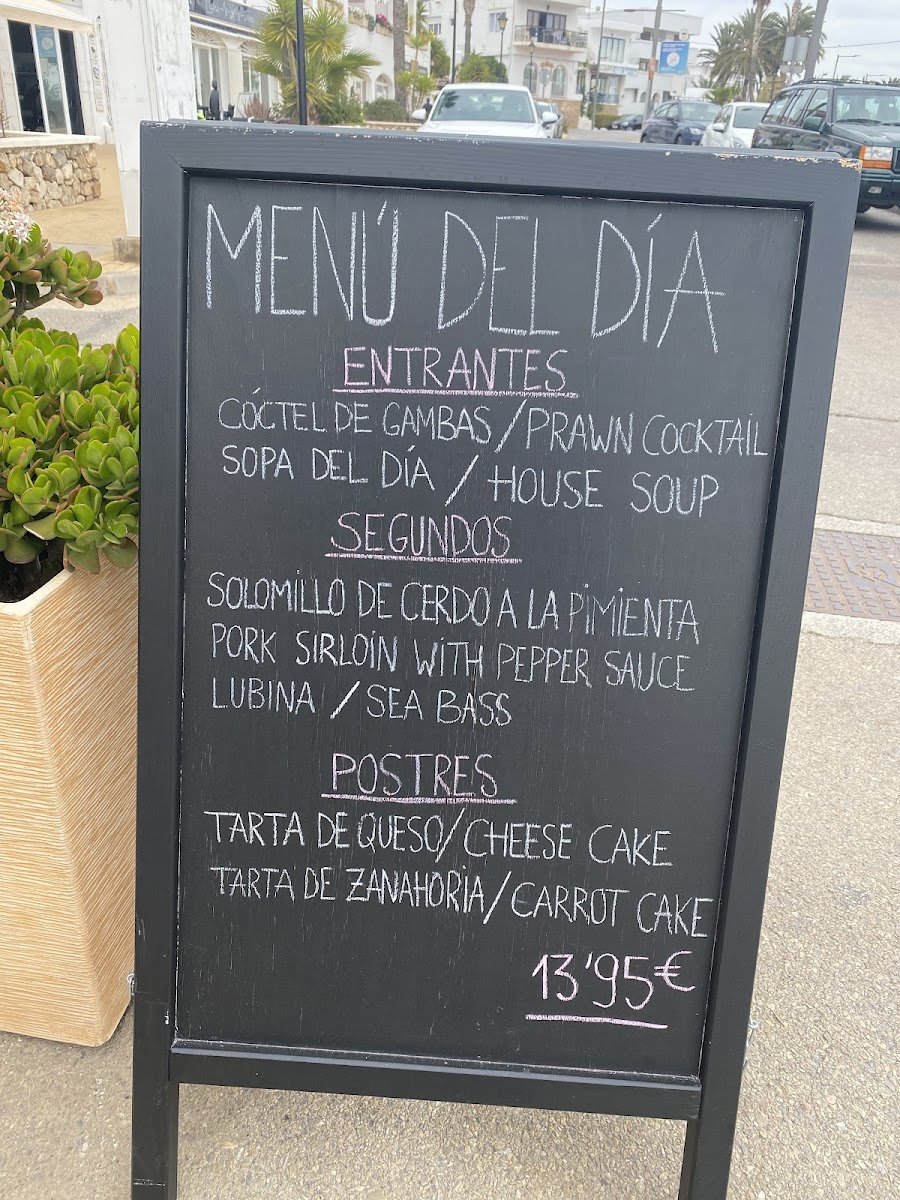 MENÚ DEL DÍA
ENTRANTES
CÓCTEL DE GAMBAS / PRAWN COCKTAIL
SOPA DEL DÍA / HOUSE SOUP
SEGUNDOS
SOLOMILLO DE CERDO A LA PIMIENTA
PORK SIRLOIN WITH PEPPER SAUCE
LUBINA / SEA BASS
POSTRES
TARTA DE QUESO / CHEESE CAKE
TARTA DE ZANAHORIA / CARROT CAKE
13'95€